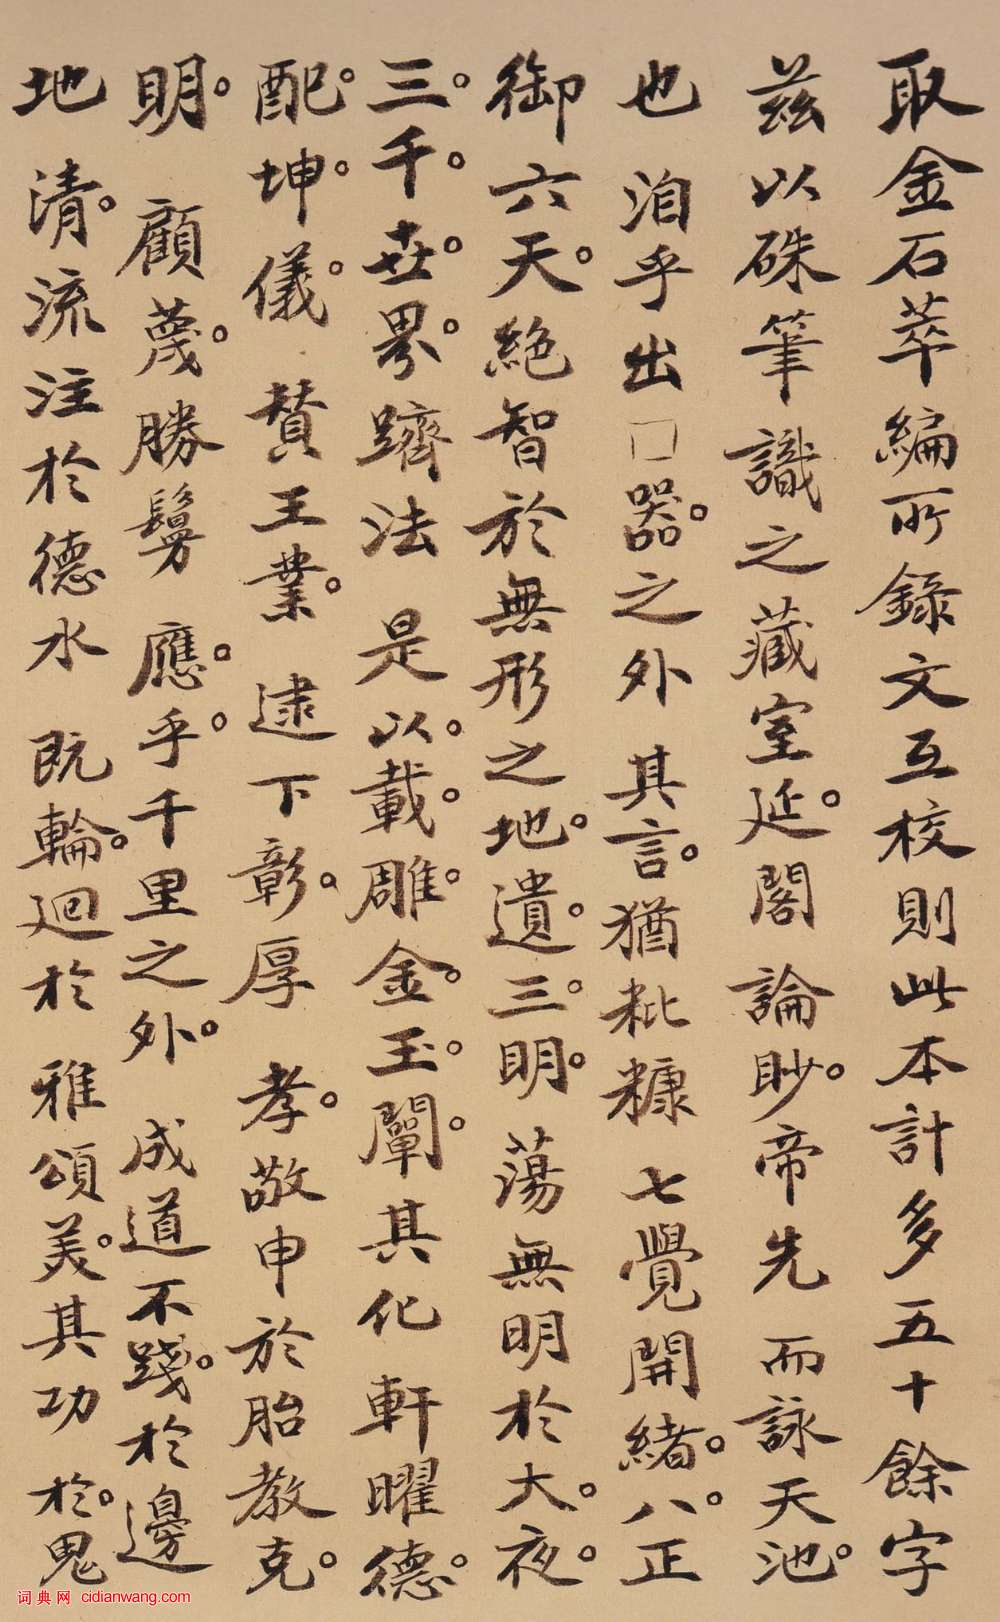 取金石萃編所錄文互校則此本計多五十餘字
茲以硃筆識之藏室延閣論眇帝先而詠天池
也洎乎出□器之外其言猶粃糠七覺開緒八正
御六天絕智於無形之地遺三明蕩無明於大夜
三千世界躋法是以載雕金玉闡其化軒曜德
配坤儀贊王業逮下彰厚孝敬申於胎教克
明顧蔑勝鬘應乎千里之外成道不踐於邊
地清流注於德水既輪迴於雅頌美其功於鬼
词典网 cidianwang.com